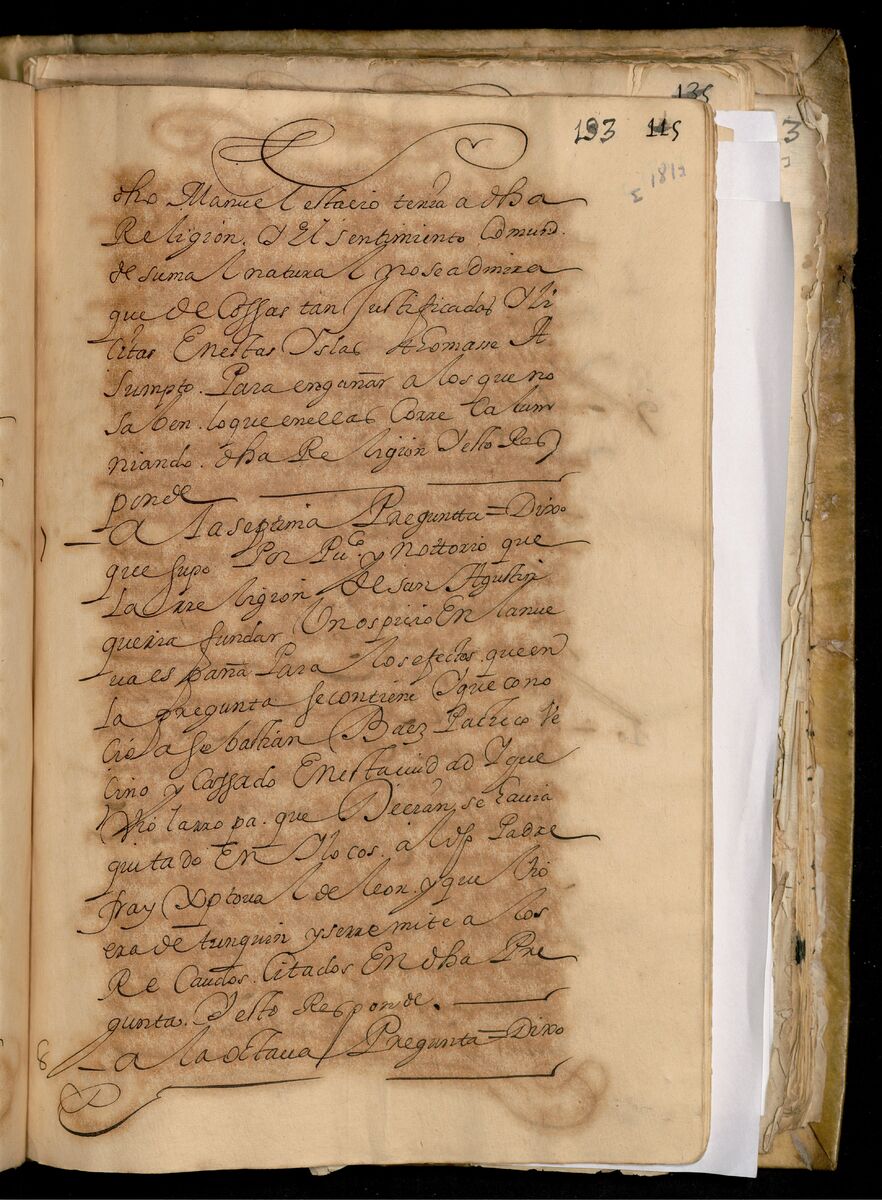 135
193 115
1817
3
dho Manuel estacio tenia a dha
Religion. Y El sentimiento Comun.
de su mal natural y no se admira
que de Cossas tan Justificadas Y li
citas En estas Yslas thomasse A
sumpto. Para engañar a los que no
saben. lo que en ellas Corre Calum
niando. dha Religion Y esto Res
ponde
7 — A la septima Pregunta = Dixo
que supo Por Puco. y nottorio que
La rreligion de san Agustin
queria fundar Un ospicio En la nue
ua españa Para los efectos. que en
La pregunta se contiene Y que cono
cio a sebasthian Baez Pacheco Ve
cino y Cassado En esta ciudad Y que
Vio la rropa. que Decian. se hauia
quitado En Ylocos. al dho Padre
fray Xptoual de leon. y que Vio
era de tunquin y se rremite a los
Recaudos. Citados En dha Pre
gunta. Y esto Responde.
8 — a la octaua Pregunta = Dixo